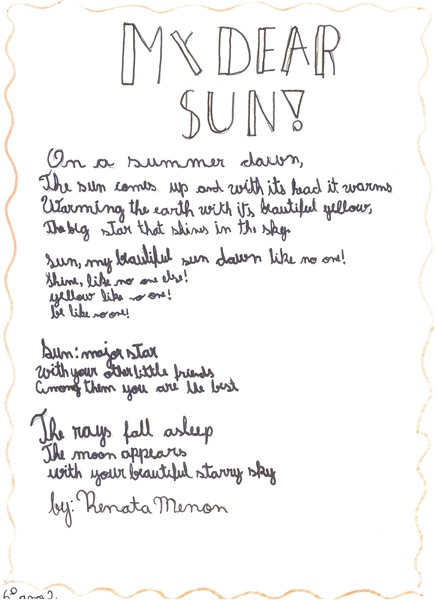 MY DEAR
SUN!
On a summer dawn,
The sun comes up and with its head it warms
Warming the earth with its beautiful yellow,
The big star that shines in the sky.
Sun, my beautiful sun dawn like no one!
Shine, like no one else!
yellow like no one!
be like no one!
Sun: major star
With your other little friends
Among them you are the best
The rays fall asleep
The moon appears
with your beautiful starry sky
by: Renata Menon
6º ano 2